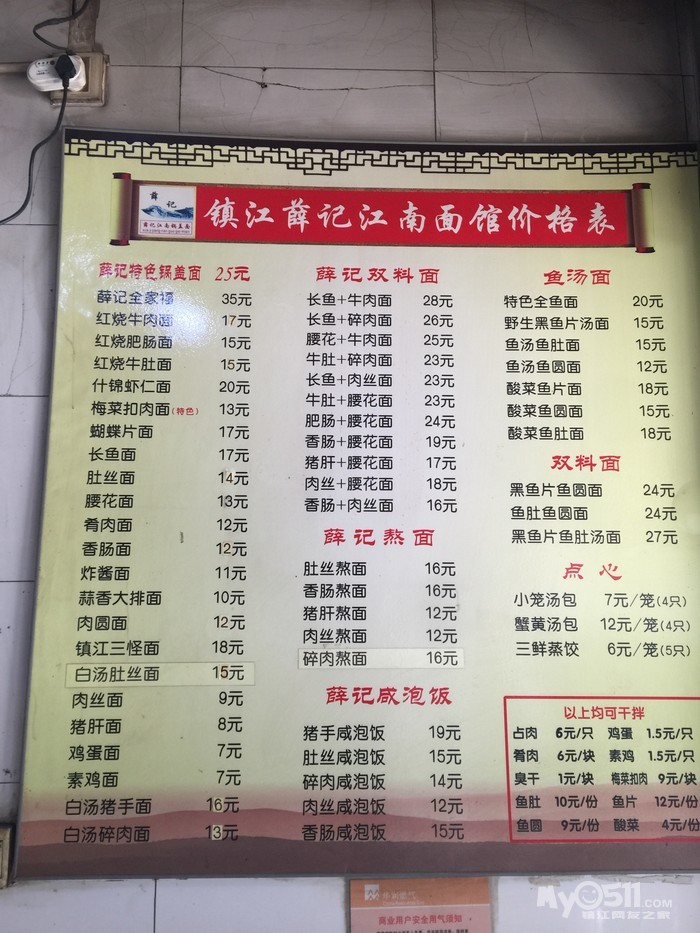 薛记
薛记江南锅盖面
镇江薛记江南面馆价格表
薛记特色锅盖面 25元
薛记全家福 35元
红烧牛肉面 17元
红烧肥肠面 15元
红烧牛肚面 15元
什锦虾仁面 20元
梅菜扣肉面(特色) 13元
蝴蝶片面 17元
长鱼面 17元
肚丝面 14元
腰花面 13元
肴肉面 12元
香肠面 12元
炸酱面 11元
蒜香大排面 10元
肉圆面 12元
镇江三怪面 18元
白汤肚丝面 15元
肉丝面 9元
猪肝面 8元
鸡蛋面 7元
素鸡面 7元
白汤猪手面 16元
白汤碎肉面 13元
薛记双料面
长鱼+牛肉面 28元
长鱼+碎肉面 26元
腰花+牛肉面 25元
牛肚+碎肉面 23元
长鱼+肉丝面 23元
牛肚+腰花面 23元
肥肠+腰花面 24元
香肠+腰花面 19元
猪肝+腰花面 17元
肉丝+腰花面 18元
香肠+肉丝面 16元
薛记熬面
肚丝熬面 16元
香肠熬面 16元
猪肝熬面 12元
肉丝熬面 12元
碎肉熬面 16元
薛记咸泡饭
猪手咸泡饭 19元
肚丝咸泡饭 15元
碎肉咸泡饭 14元
肉丝咸泡饭 12元
香肠咸泡饭 15元
鱼汤面
特色全鱼面 20元
野生黑鱼片汤面 15元
鱼汤鱼肚面 15元
鱼汤鱼圆面 12元
酸菜鱼片面 18元
酸菜鱼圆面 15元
酸菜鱼肚面 18元
双料面
黑鱼片鱼圆面 24元
鱼肚鱼圆面 24元
黑鱼片鱼肚汤面 27元
点心
小笼汤包 7元/笼(4只)
蟹黄汤包 12元/笼(4只)
三鲜蒸饺 6元/笼(5只)
以上均可干拌
占肉 6元/只 鸡蛋 1.5元/只
肴肉 6元/块 素鸡 1.5元/只
臭干 1元/块 梅菜扣肉 9元/块
鱼肚 10元/份 鱼片 12元/份
鱼圆 9元/份 酸菜 4元/份
商业用户安全用气须知
My0511.COM
镇江网友之家